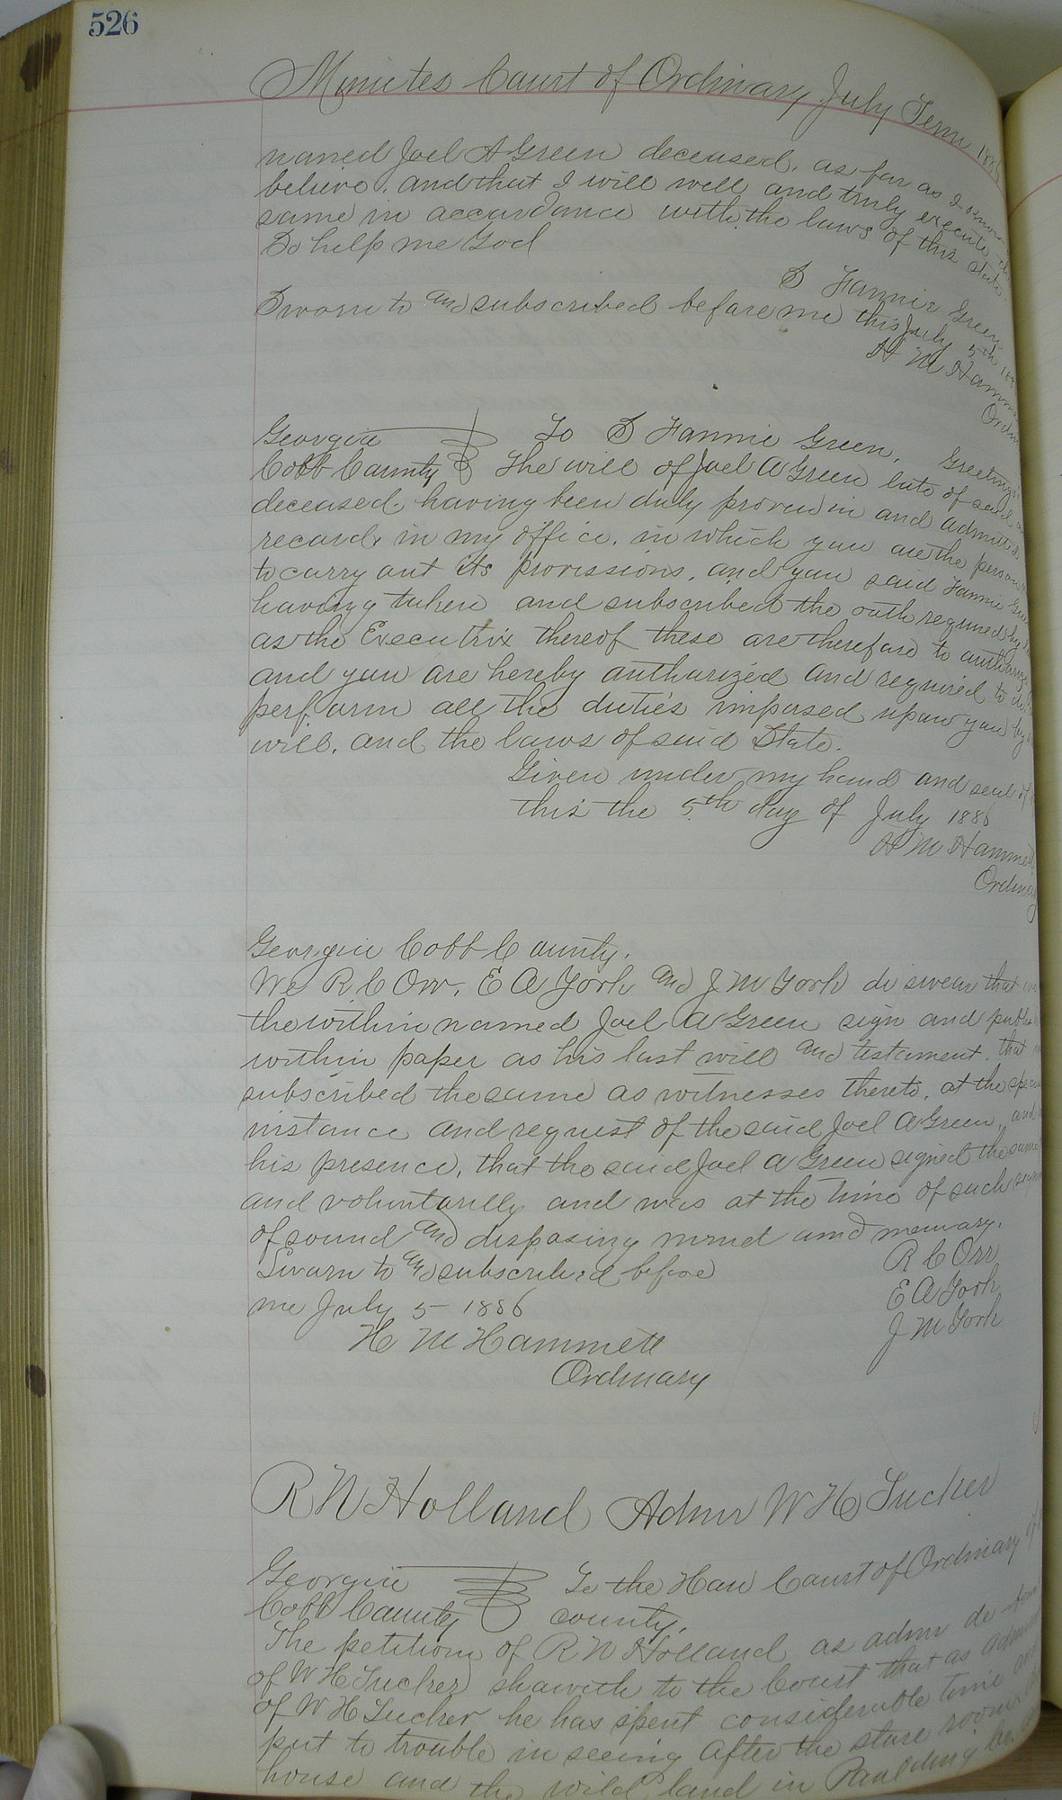 526
Minutes Court of Ordinary July Term
named Joel A Green deceased, as far as I
believe, and that I will well and truly execute
same in accordance with the laws of this State
So help me God
S Fannie Green
Sworn to and subscribed before me this July 5th
H M
Georgia To S Fannie Green, Greeting
Cobb County The will of Joel A Green late of said
deceased having been duly proven in and
record, in my office, in which you are the person
to carry out its provissions, and you said Fannie
having taken and subscribed the oath required by
as the Executrix thereof these are therefore to
and you are hereby authorized and required to
perform all the duties imposed upon you by
will, and the laws of said State.
Given under my hand and seal of
this the 5th day of July 1886
H M Hammett
Ordinary
Georgia Cobb County.
We R C Orr, E A York and J M York do swear that
the within named Joel A Green sign and
within paper as his last will and testament, that
subscribed the same as witnesses thereto, at the
instance and request of the said Joel A Green, and
his presence, that the said Joel A Green signed the same
and voluntarilly and was at the time of such
of sound and disposing mind and memory.
Sworn to and subscribed before R C Orr
me July 5 1886 E A York
H M Hammett J M York
Ordinary
R N Holland Admr W H Tucker
Georgia To the Hon Court of Ordinary of
Cobb County County.
The petition of R N Holland as admr de
of W H Tucker shaweth to the Court that as
of W H Tucker he has spent considerable time
put to trouble in seeing after the store room
house and the wild land in Paulding